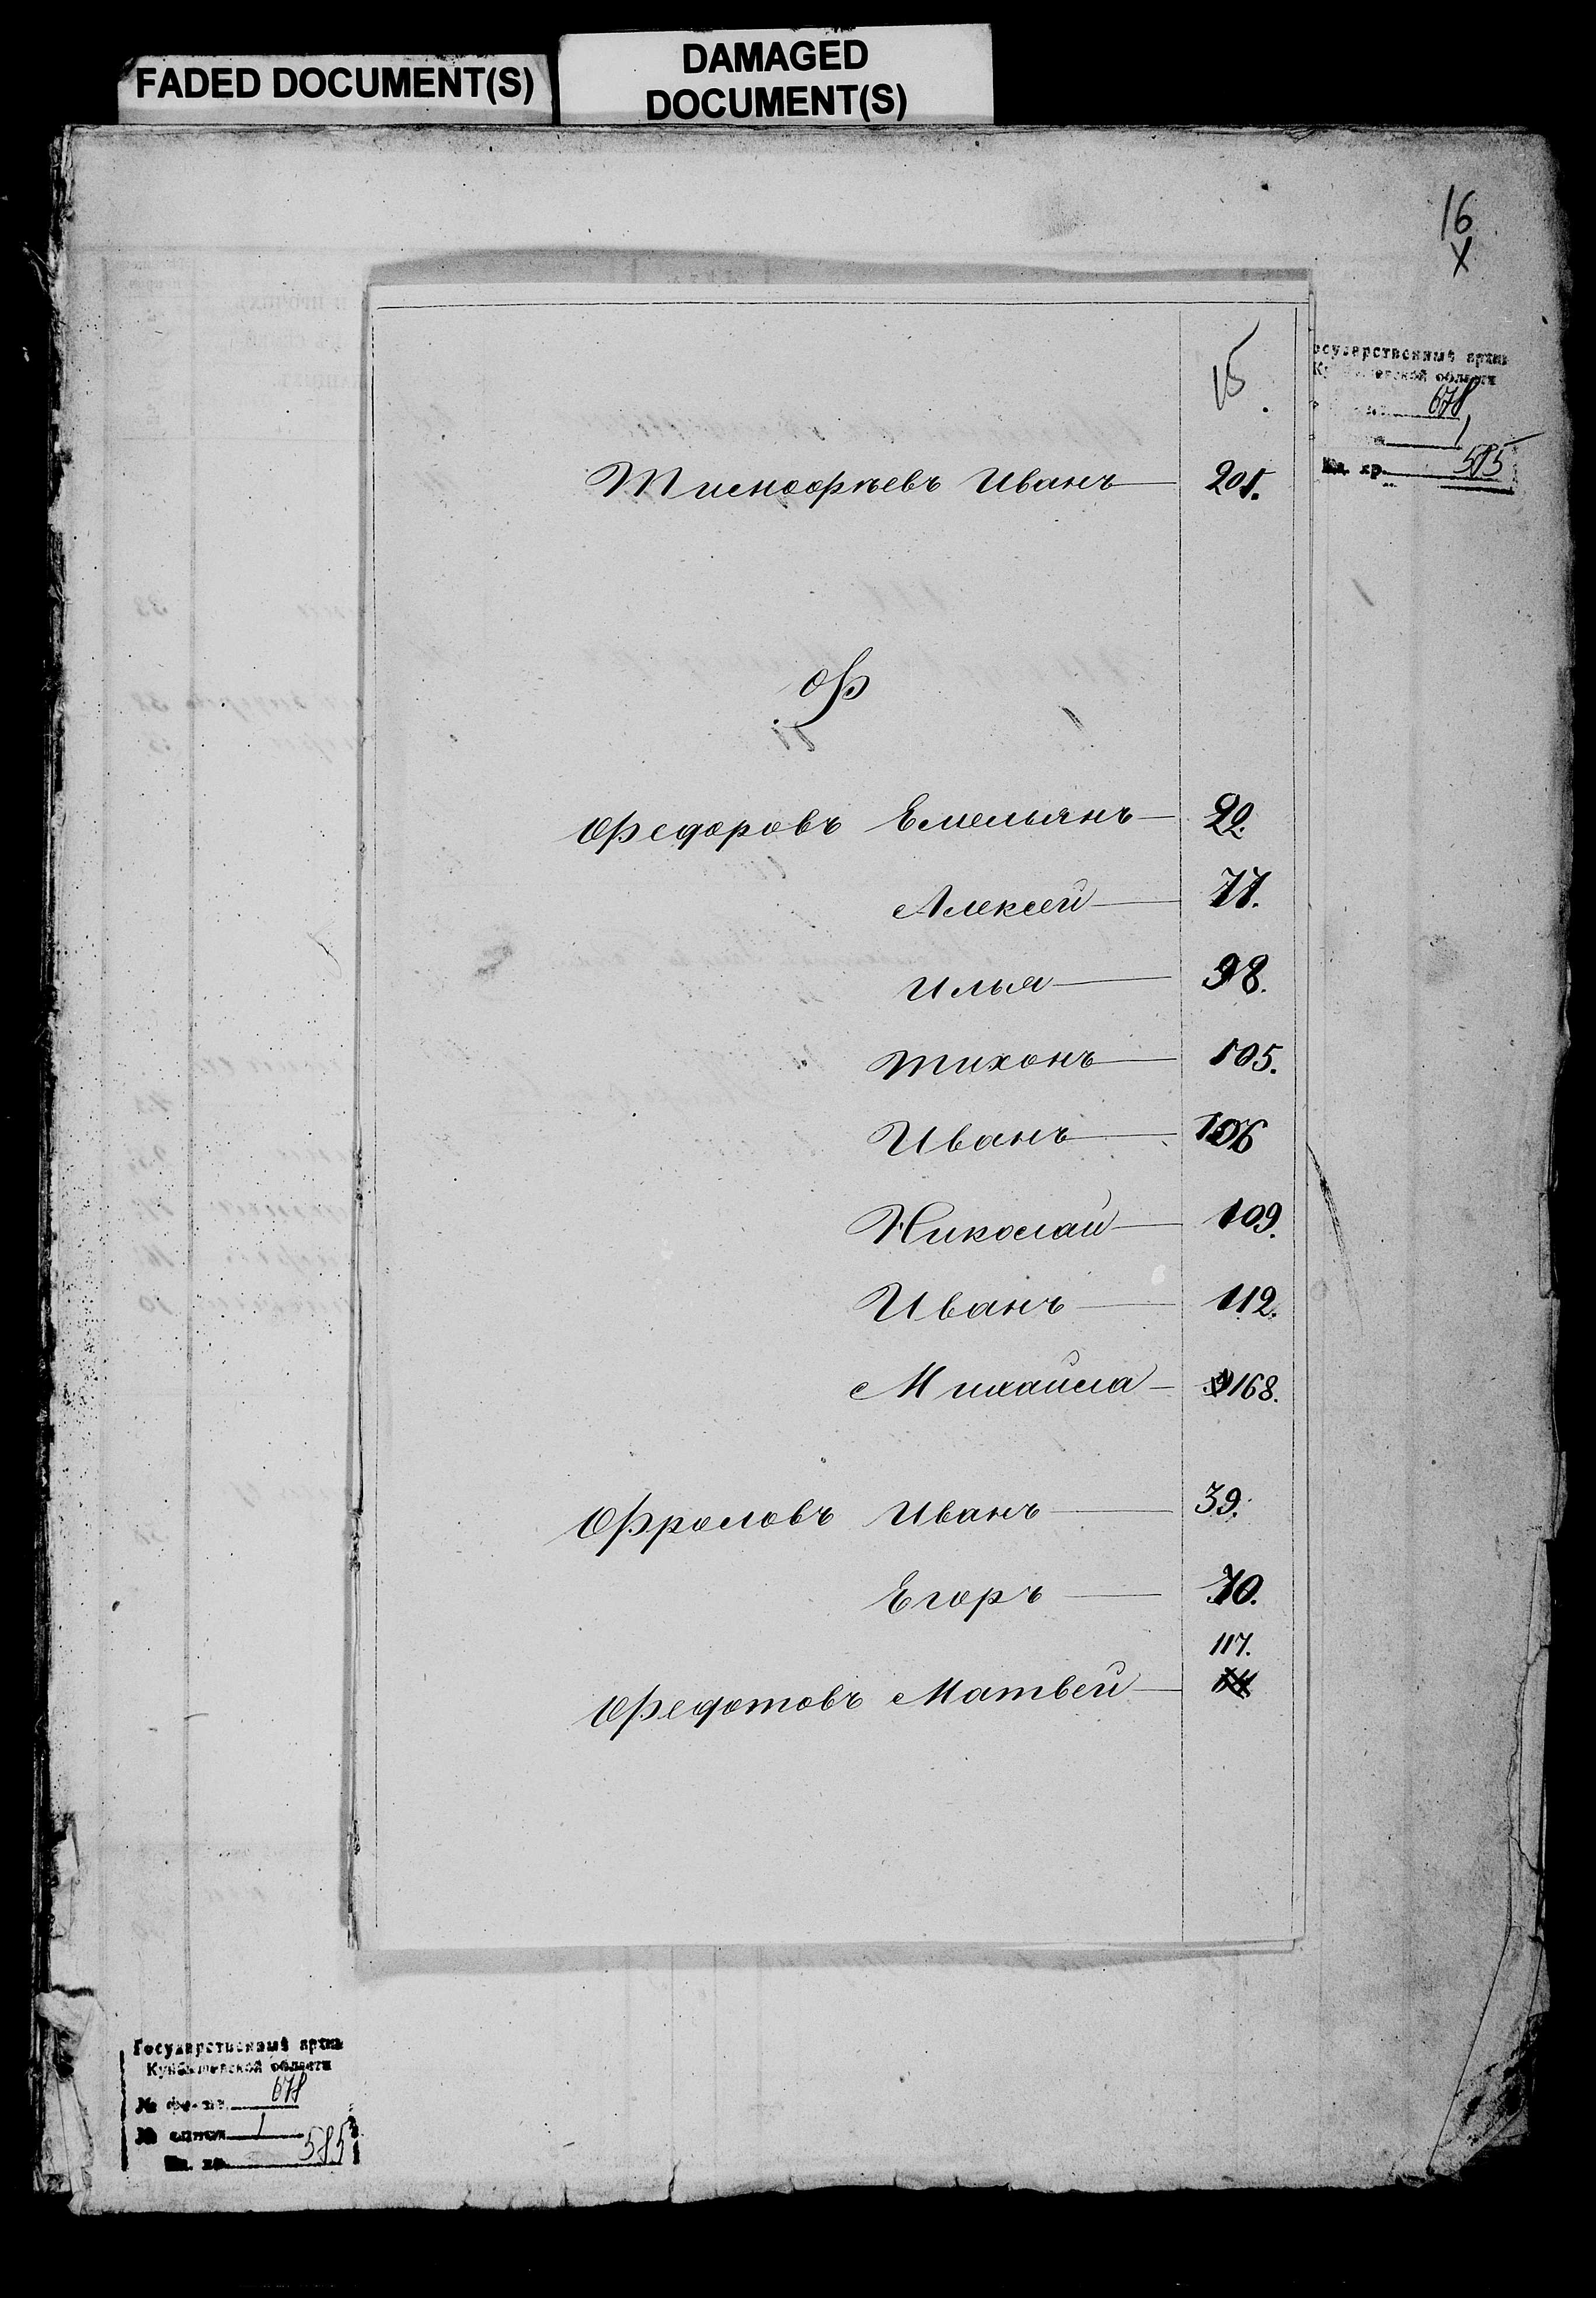 FADED DOCUMENT(S)
DAMAGED
DOCUMENT(S)
16
15
Государственный архив
Куйбышевской области
678
1
Ед. хр. 585
Тимофѣевъ Иванъ 201.
Ф
Федоровъ Емельянъ 22.
Алексей 77.
Илья 98.
Тихонъ 105.
Иванъ 106
Николай 109.
Иванъ 112.
Михайла 168.
Фроловъ Иванъ 39.
Егоръ 70.
117.
Федотовъ Матвей
Государственный архив
Куйбышевской области
№ фонда 678
№ описи 1
Ед. хр. 585